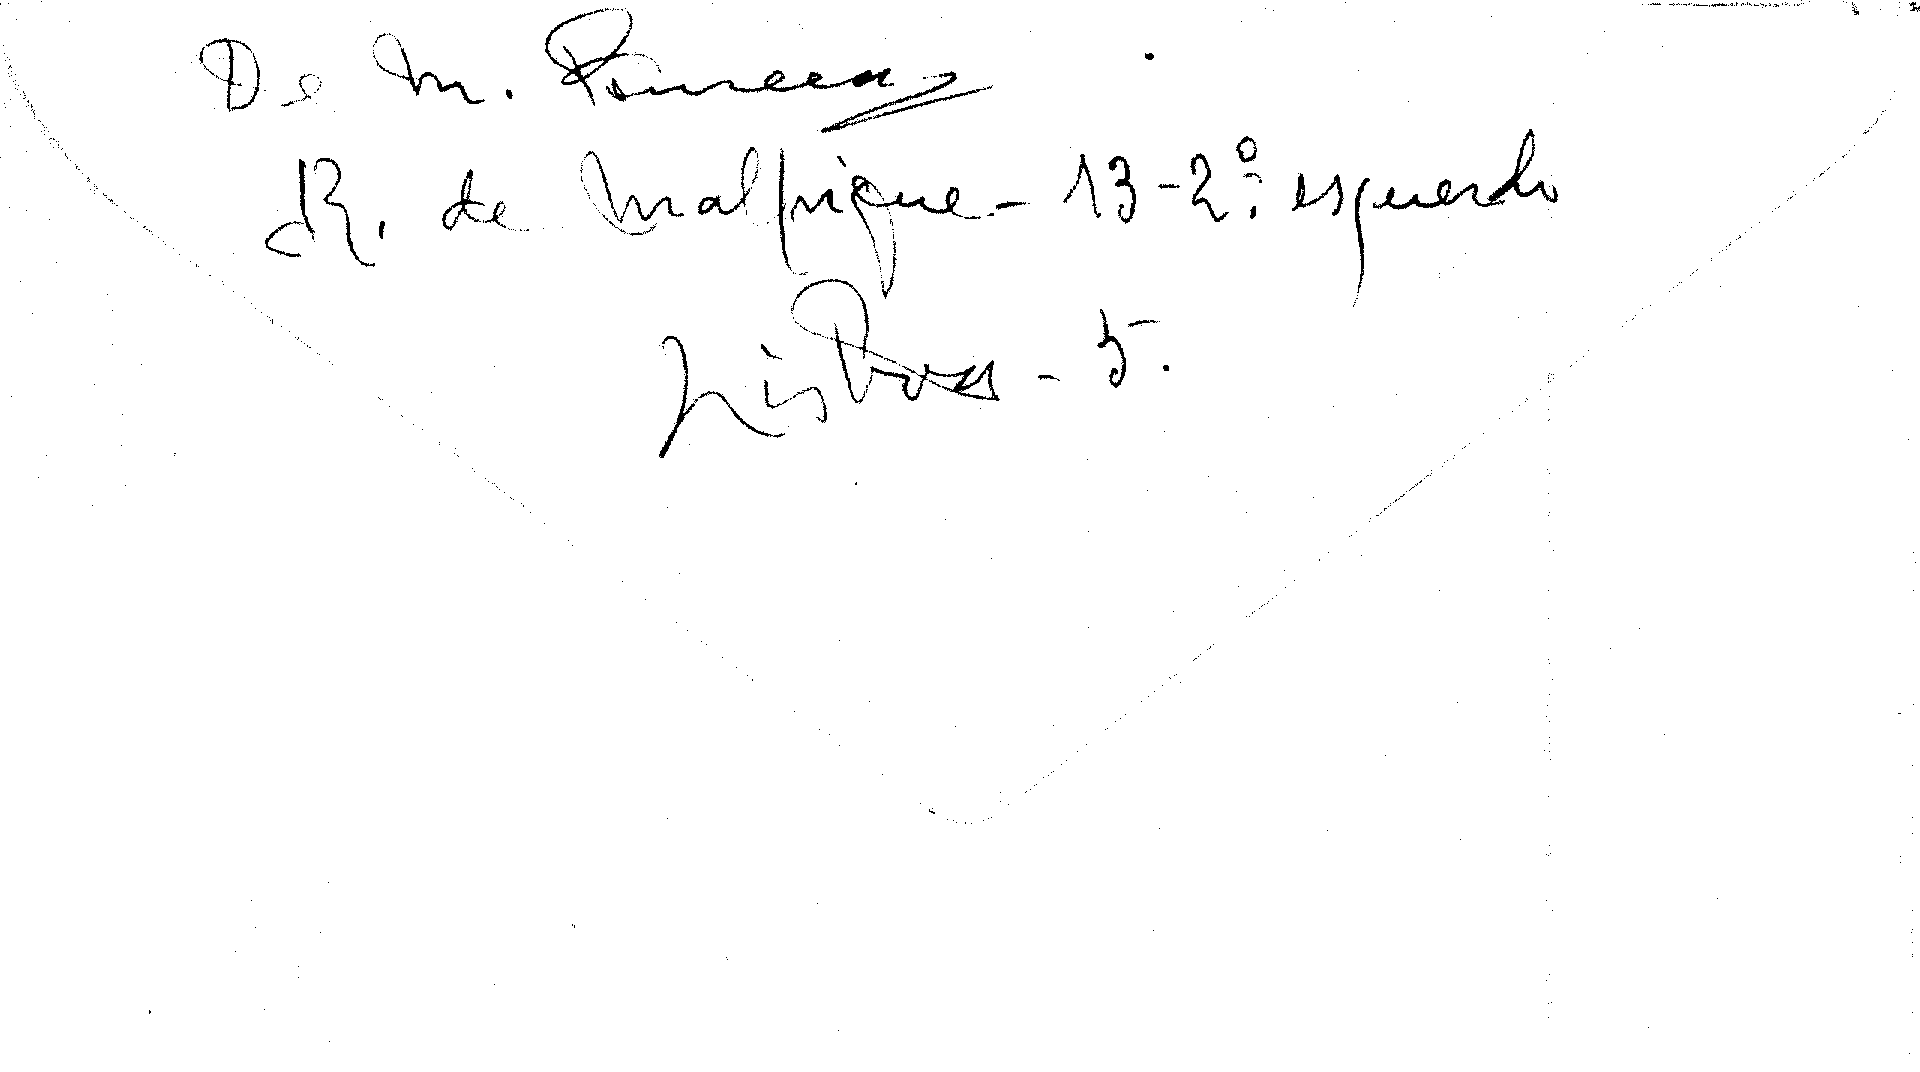 De M.
R. de Malpique - 13-2º esquerdo
Lisboa - 5.